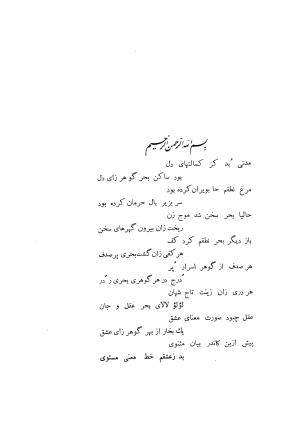 بسم الله الرحمن الرحیم
مدتی بد کز کمالتهای دل
بود ساکن بحر گوهر زای دل
مرغ نطقم جا بویران کرده بود
سر بزیر بال حرمان کرده بود
حالیا بحر سخن شد موج زن
ریخت زان بیرون گهرهای سخن
باز دیگر بحر نظقم کرد کف
هر کفی زان گشت بحری پر صدف
هر صدف از گوهر اسرار پر
درج در هر گوهری بحری ز در
هر دری زان زینت تاج شهان
لؤلؤ لالای بحر عقل و جان
عقل چبود صورت معنای عشق
یك بخار از بهر گوهر زای عشق
پیش ازین کاندر بیان مثنوی
بد ز عشقم خط معنی مستوی